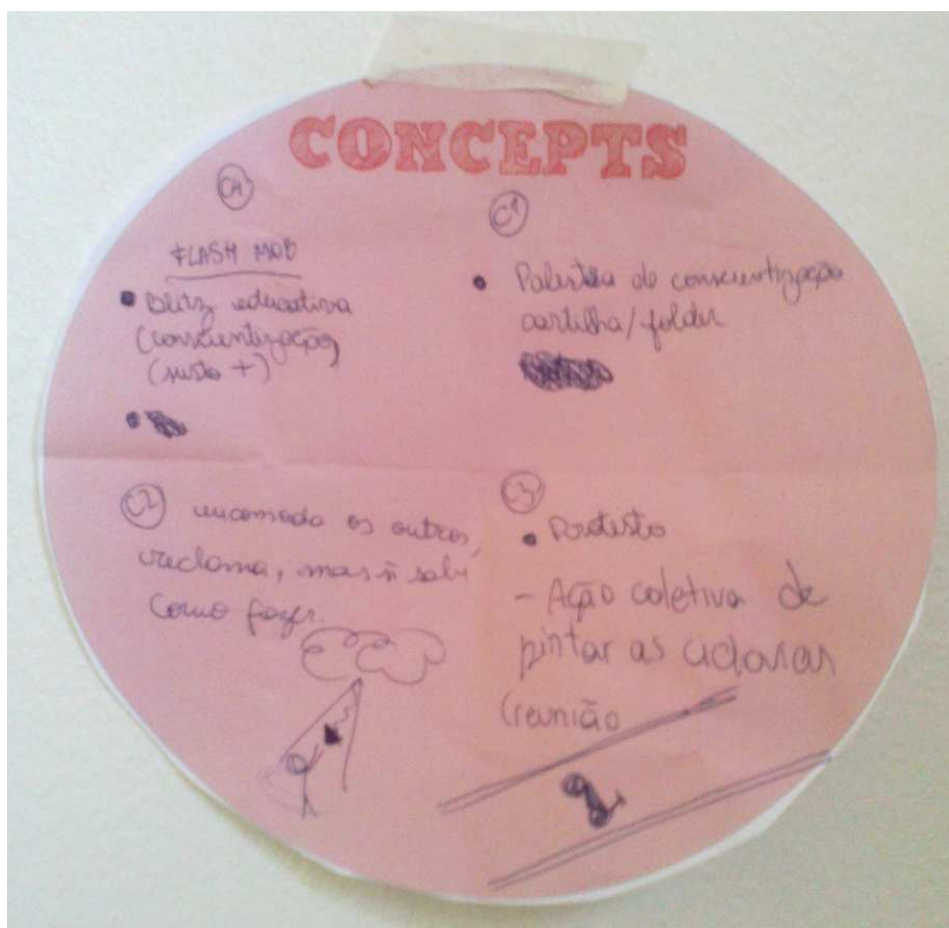 CONCEPTS
C4
FLASH MOB
• Blitz educativa
(conscientização)
(susto +)
C1
• Palestra de conscientização
cartilha/folder
C2 incomoda os outros,
reclama, mas ñ sabe
como fazer.
C3
• Protesto
- Ação coletiva de
pintar as ciclovias
(reunião